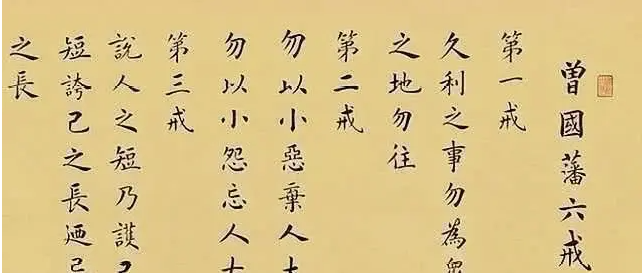 曾國藩六戒
第一戒
久利之事勿為眾
之地勿往
第二戒
勿以小惡棄人大
勿以小怨忘人大
第三戒
說人之短乃護己
短誇己之長迺己
之長